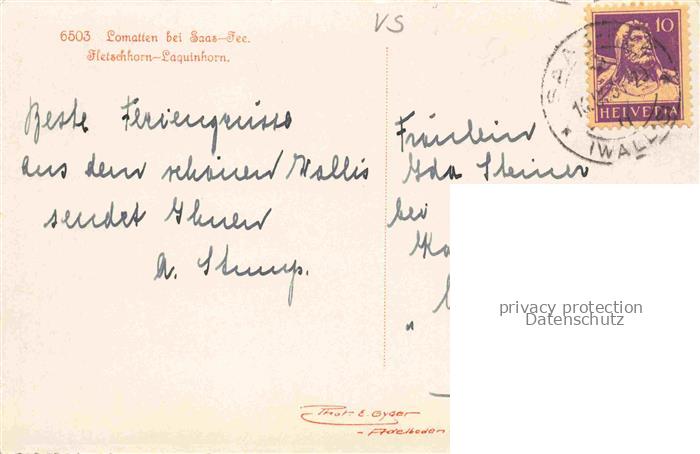 VS
6503 Lomatten bei Saas-Fee.
Fletschhorn-Laquinhorn.
10
HELVETIA
(WALL
Beste Feriengrüsse
aus dem schönen Wallis
sendet Ihnen
A. Stump.
Fräulein
Ida Steiner
bei
"
privacy protection
Datenschutz
Phot. E. Gyger
-Adelboden